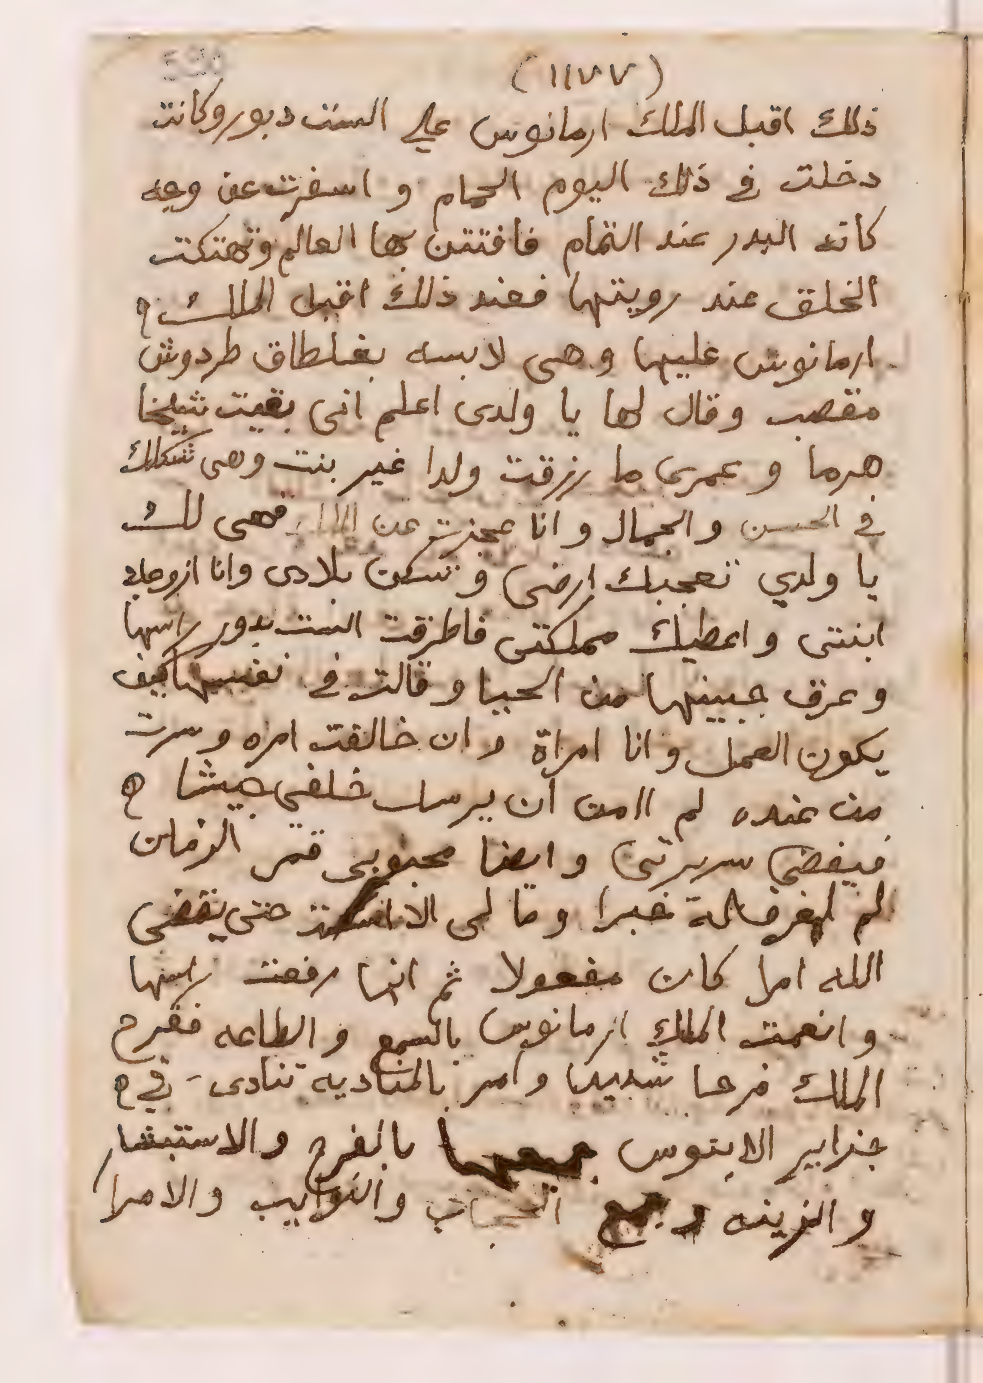 (١١٧٧)
ذلك اقبل الملك ارمانوس علي الست دبور وكانت
دخلت في ذلك اليوم الحمام و اسفرت عن وجه
كانه البدر عند التمام فافتتن بها العالم وتهتكت
الخلق عند رويتها فعند ذلك اقبل الملك
ارمانوس عليها وهى لابسه بغلطاق طردوش
مقصب وقال لها يا ولدى اعلم انى بقيت شيخا
هرما و عمرى ما رزقت ولدا غير بنت وهى شكلك
في الحسن والجمال وانا عجزت عن فهى لك
يا ولدي تعجبك ارضى و تسكن بلادى وانا ازوجك
ابنتى و اعطيك مملكتى فاطرقت الست بدور راسها
و عرق جبينها من الحيا وقالت في نفسها كيف
يكون العمل وانا امراة و ان خالفت امره وسرت
من عنده لم اامن ان يرسل خلفى جيشا
فيفضى سريرتى و ايضا محبوبى قمر الزمان
لم له خبرا وما لى الا حتى يقضى
الله امرا كان مفعولا ثم انها رفعت راسها
و انعمت الملك ارمانوس بالسمع والطاعه ففرح
الملك فرحا شديدا و امر بالمناديه تنادى في
جزاير الابنوس جميعها بالفرح والاستبشار
و الزينه و جمع الحجاب والنوايب والامرا